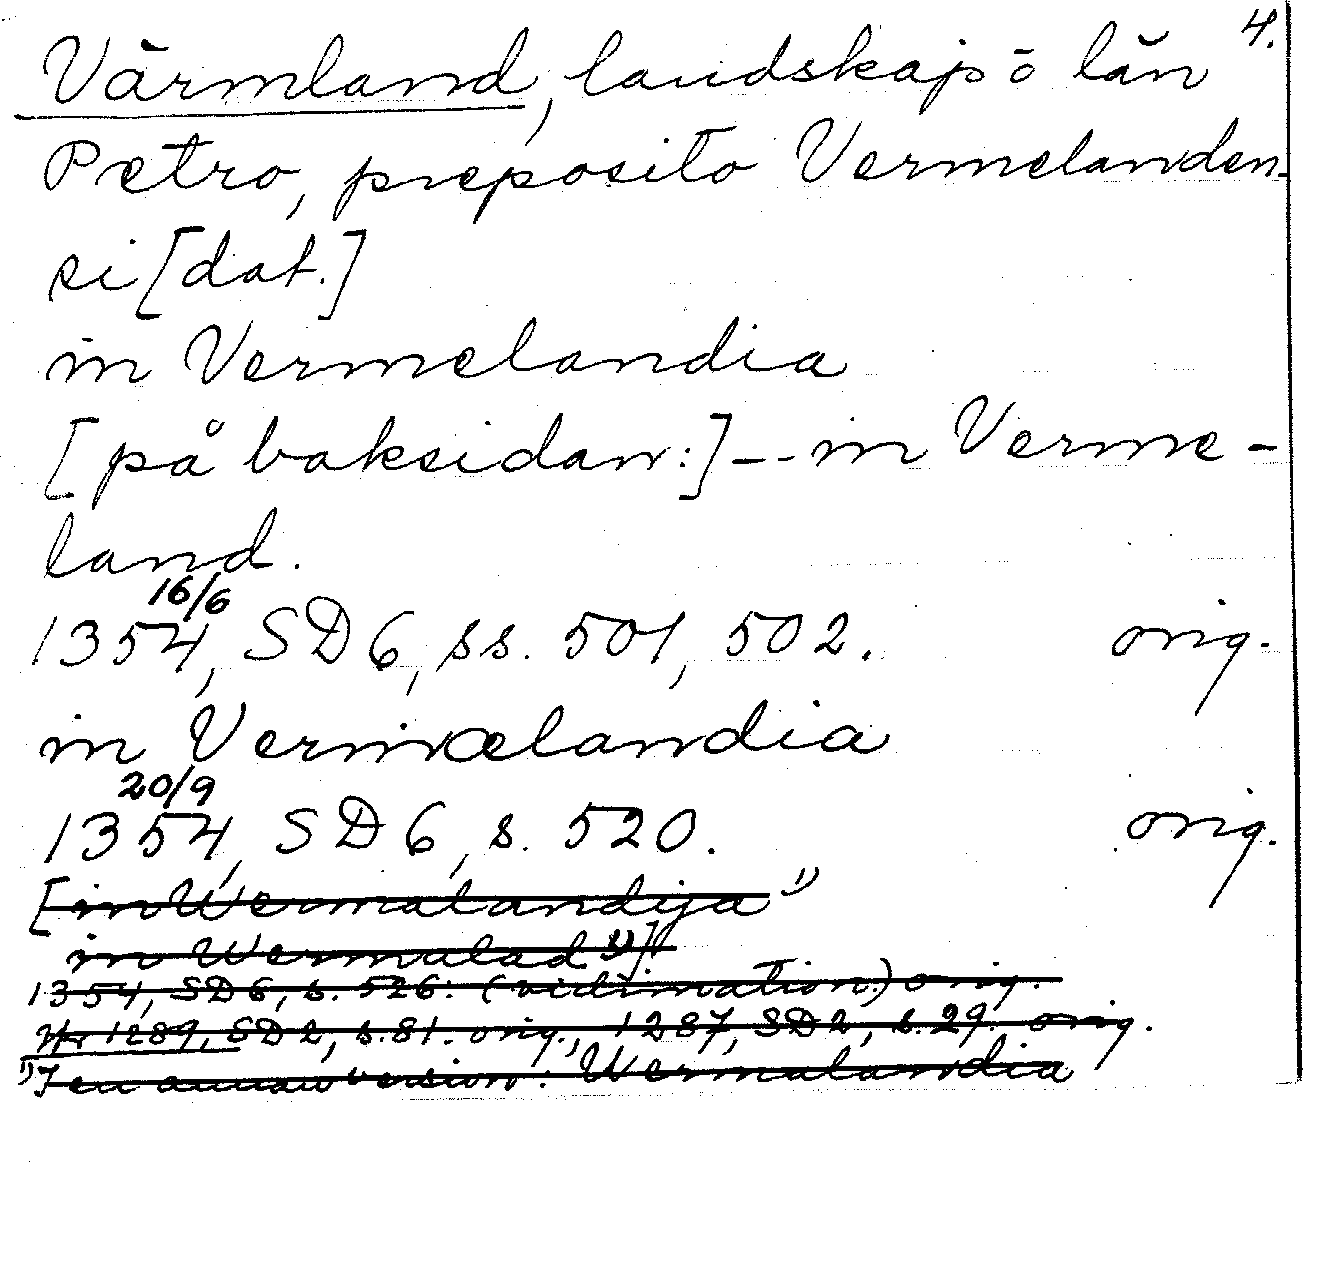 4.
Värmland, landskap o län
Petro, preposito Vermelanden-
si [dat.]
in Vermelandia
[på baksidan:] -- in Verme-
land.
16/6
1354, SD 6, ss. 501, 502. orig.
in Vermælandia
20/9
1354, SD 6, s. 520. orig.
[in Wermalandija 1)
in Wermalad 1)]
1354, SD 6, s. 526. (vidimation) orig.
1289, SD 2, s. 81. orig., 1287, SD 2, s. 29. orig.
1) I en annan version: Wermalandia